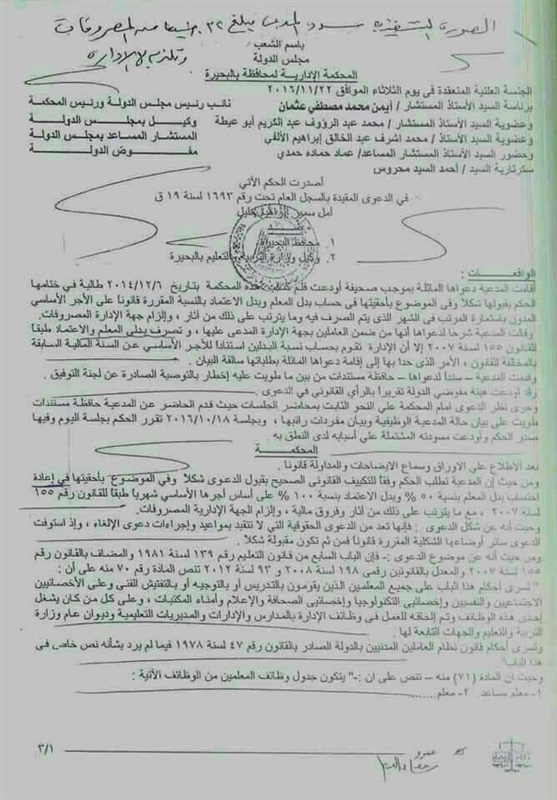 الصورة التنفيذية
باسم الشعب
مجلس الدولة
المحكمة الإدارية لمحافظة بالبحيرة
الجلسة العلنية المنعقدة في يوم الثلاثاء الموافق ٢٠١٦/١١/٢٢
برئاسة السيد الأستاذ المستشار / أيمن محمد مصطفي عثمان نائب رئيس مجلس الدولة ورئيس المحكمة
وعضوية السيد الأستاذ المستشار / محمد عبد الرؤوف عبد الكريم أبو عيطة وكيل بمجلس الدولة
وعضوية السيد الأستاذ / محمد اشرف عبد الخالق إبراهيم الألفي المستشار المساعد بمجلس الدولة
وحضور السيد الأستاذ المستشار المساعد/ عماد حماده حمدي مفوض الدولة
سكرتارية السيد / أحمد السيد محروس
أصدرت الحكم الآتي
في الدعوى المقيدة بالسجل العام تحت رقم ١٦٩٣ لسنة ١٩ ق
١. محافظ البحيرة
٢. وكيل وزارة التربية والتعليم بالبحيرة
الواقعات :
أقامت المدعية دعواها الماثلة بموجب صحيفة أودعت قلم كتاب هذه المحكمة بتاريخ ٢٠١٤/١٢/٦ طالبة في ختامها
الحكم بقبولها شكلاً وفي الموضوع بأحقيتها في حساب بدل المعلم وبدل الاعتماد بالنسبة المقررة قانوناً على الأجر الأساسي
المدون باستمارة المرتب في الشهر الذي يتم الصرف فيه وما يترتب على ذلك من آثار ، وإلزام جهة الإدارة المصروفات.
وقالت المدعية شرحاً لدعواها أنها من ضمن العاملين بجهة الإدارة المدعى عليها ، و تصرف بدلي المعلم والاعتماد طبقا
للقانون ١٥٥ لسنة ٢٠٠٧ إلا أن الإدارة تقوم بحساب نسبة البدلين استنادا للأجر الأساسي عن السنة المالية السابقة
بالمخالفة للقانون ، الأمر الذي حدا بها إلى إقامة دعواها الماثلة بطلباتها سالفة البيان .
وقدمت المدعية – سنداً لدعواها – حافظة مستندات من بين ما طويت عليه إخطار بالتوصية الصادرة عن لجنة التوفيق .
وقد أودعت هيئة مفوضي الدولة تقريراً بالرأي القانوني في الدعوى .
وجرى نظر الدعوى أمام المحكمة على النحو الثابت بمحاضر الجلسات حيث قدم الحاضر عن المدعية حافظة مستندات
طويت على بيان حالة المدعية الوظيفية وبيان مفردات راتبها ، وبجلسة ٢٠١٦/١٠/١٨ تقرر الحكم بجلسة اليوم وفيها
صدر الحكم وأودعت مسودته المشتملة على أسبابه لدى النطق به .
المحكمة
بعد الاطلاع على الاوراق وسماع الايضاحات والمداولة قانونا .
ومن حيث إن المدعية تطلب الحكم وفقاً للتكييف القانوني الصحيح بقبول الدعوى شكلاً وفي الموضوع بأحقيتها في إعادة
احتساب بدل المعلم بنسبة ٥٠ % وبدل الاعتماد بنسبة ١٠٠ % على أساس أجرها الأساسي شهرياً طبقاً للقانون رقم ١٥٥
لسنة ٢٠٠٧ ، مع ما يترتب على ذلك من آثار وفروق مالية ، وإلزام الجهة الإدارية المصروفات.
وحيث أنه عن شكل الدعوى : فإنها تعد من الدعوى الحقوقية التي لا تتقيد بمواعيد وإجراءات دعوى الإلغاء ، وإذ استوفت
الدعوى سائر أوضاعها الشكلية المقررة قانوناً فمن ثم تكون مقبولة شكلاً .
ومن حيث أنه عن موضوع الدعوى :- فإن الباب السابع من قانون التعليم رقم ١٣٩ لسنة ١٩٨١ والمضاف بالقانون رقم
١٥٥ لسنة ٢٠٠٧ والمعدل بالقانونين رقمى ١٩٨ لسنة ٢٠٠٨ و ٩٣ لسنة ٢٠١٢ تنص المادة ٧٠ منه على أن :
" تسرى أحكام هذا الباب على جميع المعلمين الذين يقومون بالتدريس أو بالتوجيه أو بالتفتيش الفنى وعلى الأخصائيين
الاجتماعيين والنفسيين وإخصائيي التكنولوجيا وإخصائيي الصحافة والإعلام وأمناء المكتبات ، وعلى كل من كان يشغل
إحدى هذه الوظائف وتم إلحاقه للعمل في وظائف الإدارة بالمدارس والإدارات والمديريات التعليمية وديوان عام وزارة
التربية والتعليم والجهات التابعة لها .
وتسرى أحكام قانون نظام العاملين المدنيين بالدولة الصادر بالقانون رقم ٤٧ لسنة ١٩٧٨ فيما لم يرد بشأنه نص خاص في
هذا الباب"
وحيث ان المادة (٧١) منه – تنص على ان :-" يتكون جدول وظائف المعلمين من الوظائف الآتية :
١- معلم مساعد . ٢- معلم
٣/١